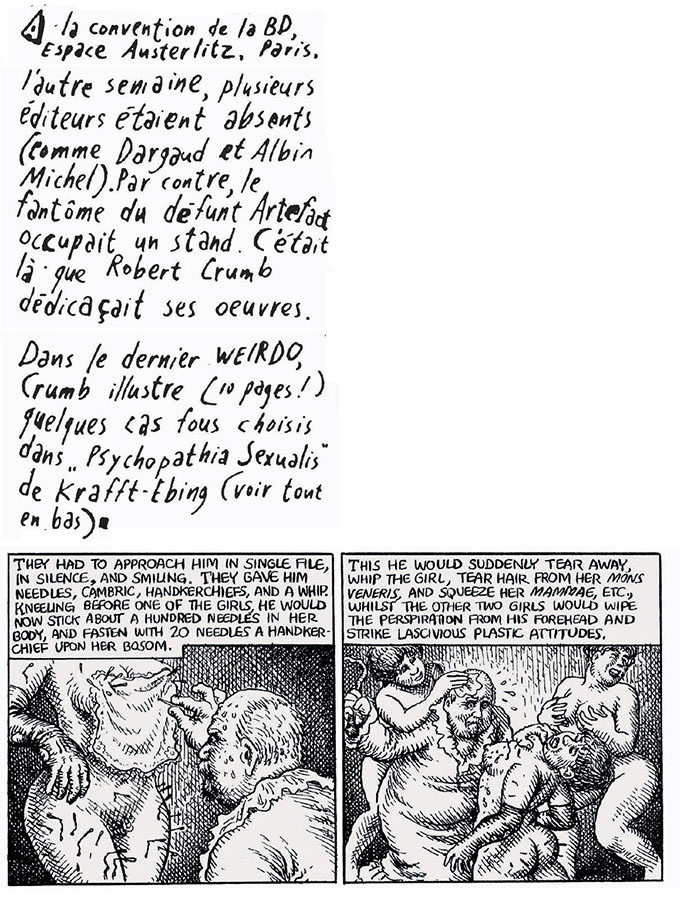 A la convention de la BD,
Espace Austerlitz, Paris,
l'autre semaine, plusieurs
éditeurs étaient absents
(comme Dargaud et Albin
Michel). Par contre, le
fantôme du défunt Artefact
occupait un stand. C'était
là que Robert Crumb
dédicaçait ses oeuvres.
Dans le dernier WEIRDO,
Crumb illustre (10 pages!)
quelques cas fous choisis
dans „Psychopathia Sexualis"
de Krafft-Ebing (voir tout
en bas).
THEY HAD TO APPROACH HIM IN SINGLE FILE,
IN SILENCE, AND SMILING. THEY GAVE HIM
NEEDLES, CAMBRIC, HANDKERCHIEFS, AND A WHIP.
KNEELING BEFORE ONE OF THE GIRLS, HE WOULD
NOW STICK ABOUT A HUNDRED NEEDLES IN HER
BODY, AND FASTEN WITH 20 NEEDLES A HANDKER-
CHIEF UPON HER BOSOM.
THIS HE WOULD SUDDENLY TEAR AWAY,
WHIP THE GIRL, TEAR HAIR FROM HER MONS
VENERIS, AND SQUEEZE HER MAMMAE, ETC.,
WHILST THE OTHER TWO GIRLS WOULD WIPE
THE PERSPIRATION FROM HIS FOREHEAD AND
STRIKE LASCIVIOUS PLASTIC ATTITUDES.